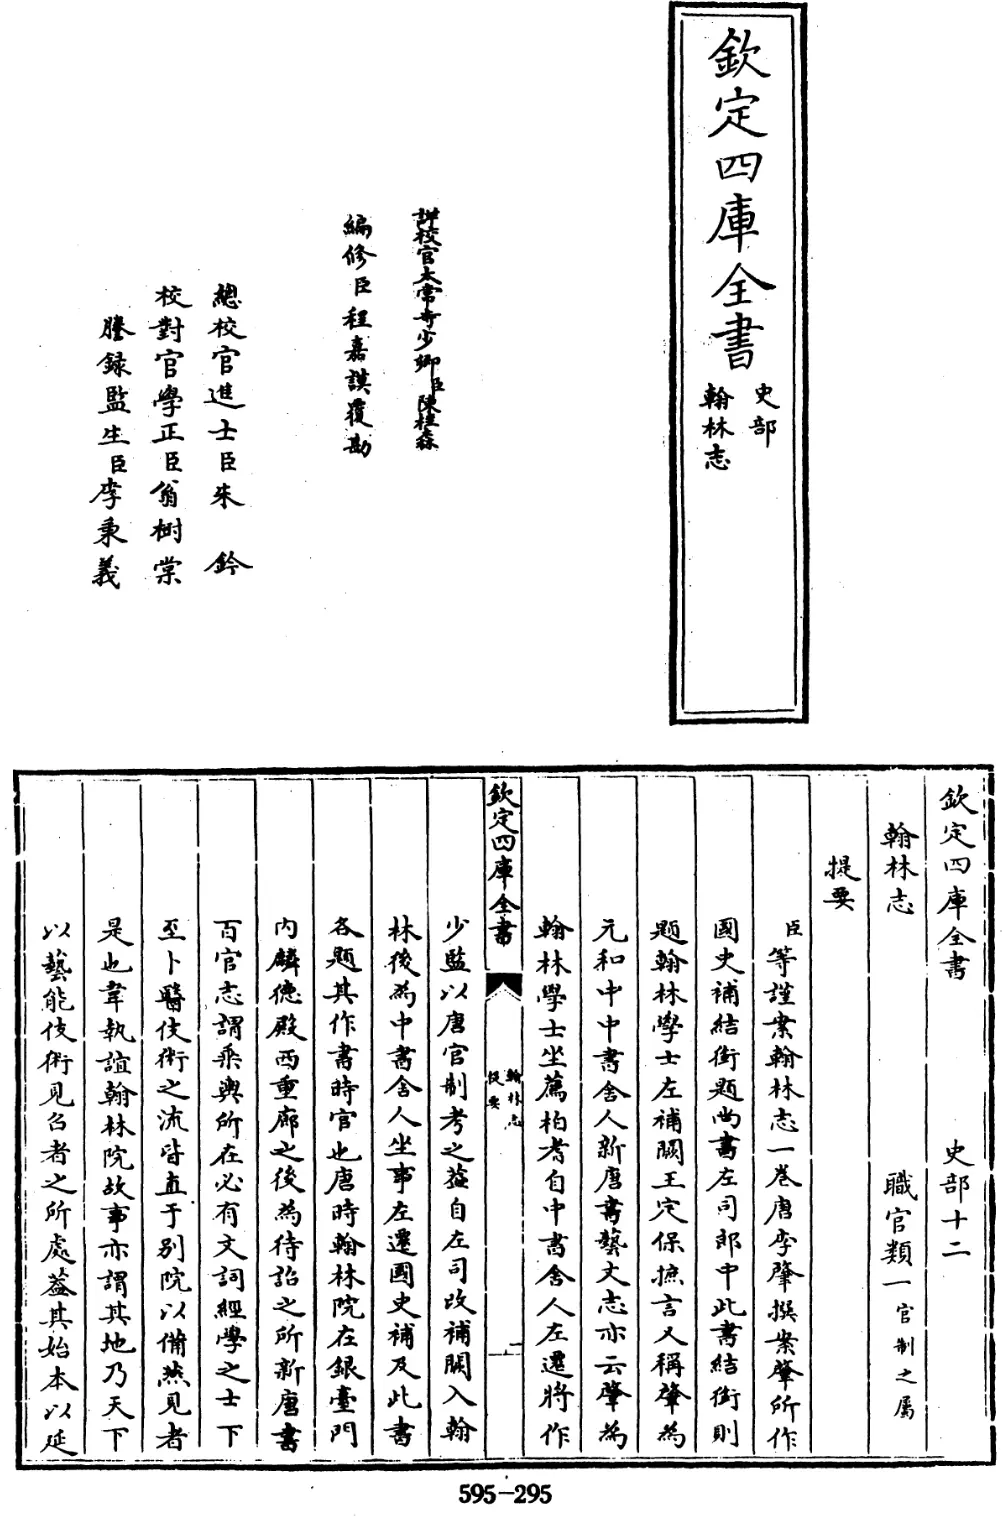 欽定四庫全書
史部
翰林志
詳校官太常寺少卿臣陳桂森
編修臣程嘉謨覆勘
總校官進士臣朱鈐
校對官學正臣翁樹棠
謄録監生臣李秉義
欽定四庫全書 史部十二
翰林志 職官類一官制之屬
提要
臣等謹案翰林志一卷唐李肇撰案肇所作
國史補結銜題尚書左司郎中此書結銜則
題翰林學士左補闕王定保摭言又稱肇為
元和中中書舍人新唐書藝文志亦云肇為
翰林學士坐薦柏耆自中書舍人左遷將作
欽定四庫全書
翰林志
提要
一
少監以唐官制考之葢自左司改補闕入翰
林後為中書舍人坐事左遷國史補及此書
各題其作書時官也唐時翰林院在銀臺門
内麟德殿西重廊之後為待詔之所新唐書
百官志謂乘輿所在必有文詞經學之士下
至卜醫伎術之流皆直于别院以備燕見者
是也韋執誼翰林院故事亦謂其地乃天下
以藝能伎術見召者之所處葢其始本以延
595-295